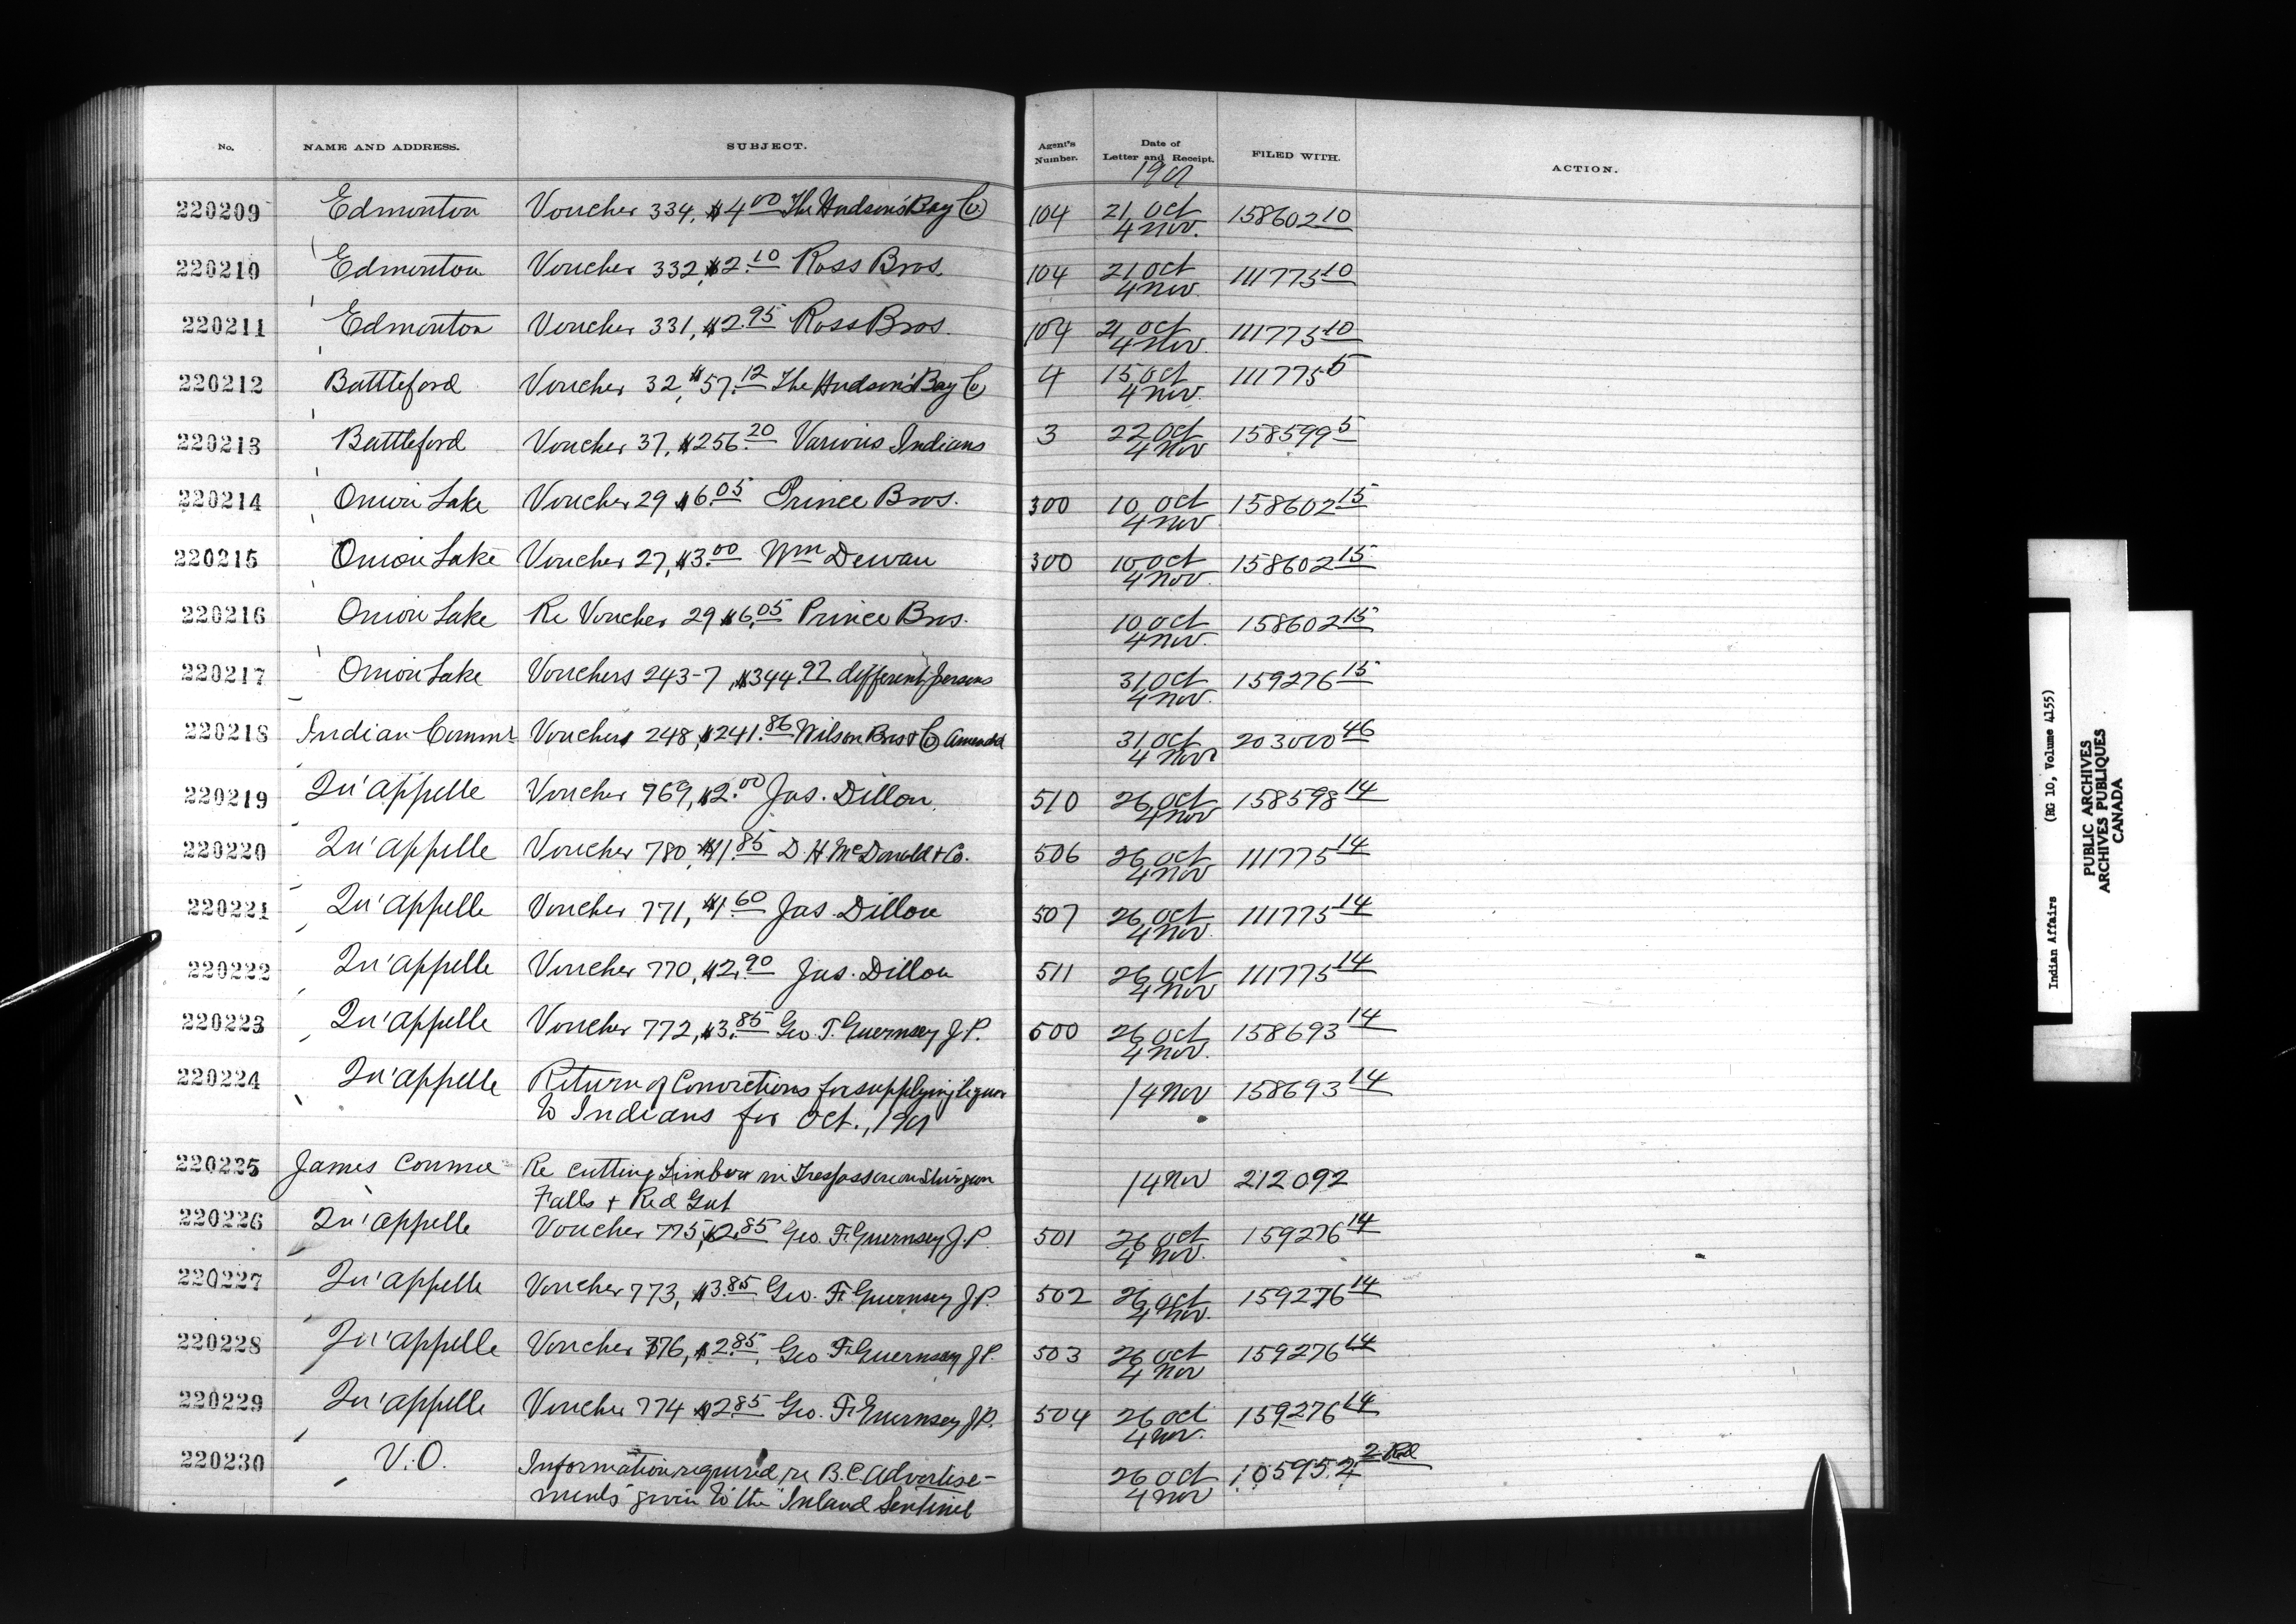 No. NAME AND ADDRESS. SUBJECT. Agent's Number. Date of Letter and Receipt. FILED WITH. ACTION.
1901
220209 Edmonton Voucher 334, $4.00 The Hudson's Bay Co 104 21 Oct 158602 10
4 Nov.
220210 Edmonton Voucher 332, $2.10 Ross Bros. 104 21 Oct 111775 10
4 Nov.
220211 Edmonton Voucher 331, $2.95 Ross Bros. 104 21 Oct 111775 10
4 Nov.
220212 Battleford Voucher 32, $57.12 The Hudson's Bay Co 4 15 Oct 111775 5
4 Nov.
220213 Battleford Voucher 37, $256.20 Various Indians 3 22 Oct 158599 5
4 Nov
220214 Onion Lake Voucher 29 $6.05 Prince Bros. 300 10 Oct 158602 15
4 Nov
220215 Onion Lake Voucher 27, $3.00 Wm Dewan 300 10 Oct 158602 15
4 Nov.
220216 Onion Lake Re Voucher 29 $6.05 Prince Bros. 10 Oct 158602 15
4 Nov.
220217 Onion Lake Vouchers 243-7, $344.97 different persons 31 Oct 159276 15
4 Nov.
220218 Indian Commr Vouchers 248, $241.86 Wilson Bros & Co Amended 31 Oct 203000 46
4 Nov
220219 Qu'appelle Voucher 769, $2.00 Jas. Dillon. 510 26 Oct 158598 14
4 Nov
220220 Qu'appelle Voucher 780, $11.85 D. H McDonald & Co. 506 26 Oct 111775 14
4 Nov
220221 Qu'appelle Voucher 771, $1.60 Jas. Dillon 507 26 Oct 111775 14
4 Nov.
220222 Qu'appelle Voucher 770, $2.90 Jas. Dillon 511 26 Oct 111775 14
4 Nov
220223 Qu'appelle Voucher 772, $3.85 Geo. F. Guernsey J.P. 500 26 Oct 158693 14
4 Nov.
220224 Qu'appelle Return of Convictions for supplying liquor 14 Nov 158693 14
to Indians for Oct., 1901
220225 James Conmee Re cutting Timber in Trespass on Sturgeon 14 Nov 212092
Falls & Red Gut
220226 Qu'appelle Voucher 775, $2.85 Geo. F. Guernsey J.P. 501 26 Oct 159276 14
4 Nov.
220227 Qu'appelle Voucher 773, $3.85 Geo. F. Guernsey J.P. 502 26 Oct 159276 14
4 Nov.
220228 Qu'appelle Voucher 776, $2.85, Geo F. Guernsey J.P. 503 26 Oct 159276 14
4 Nov
220229 Qu'appelle Voucher 774 $2.85 Geo. F. Guernsey J.P. 504 26 Oct 159276 14
4 Nov.
220230 V.O. Information required re B.C. Advertise- 26 Oct 105952 2 Red
ments given to the "Inland Sentinel 4 Nov
Indian Affairs (RG 10, Volume 4155)
PUBLIC ARCHIVES
ARCHIVES PUBLIQUES
CANADA